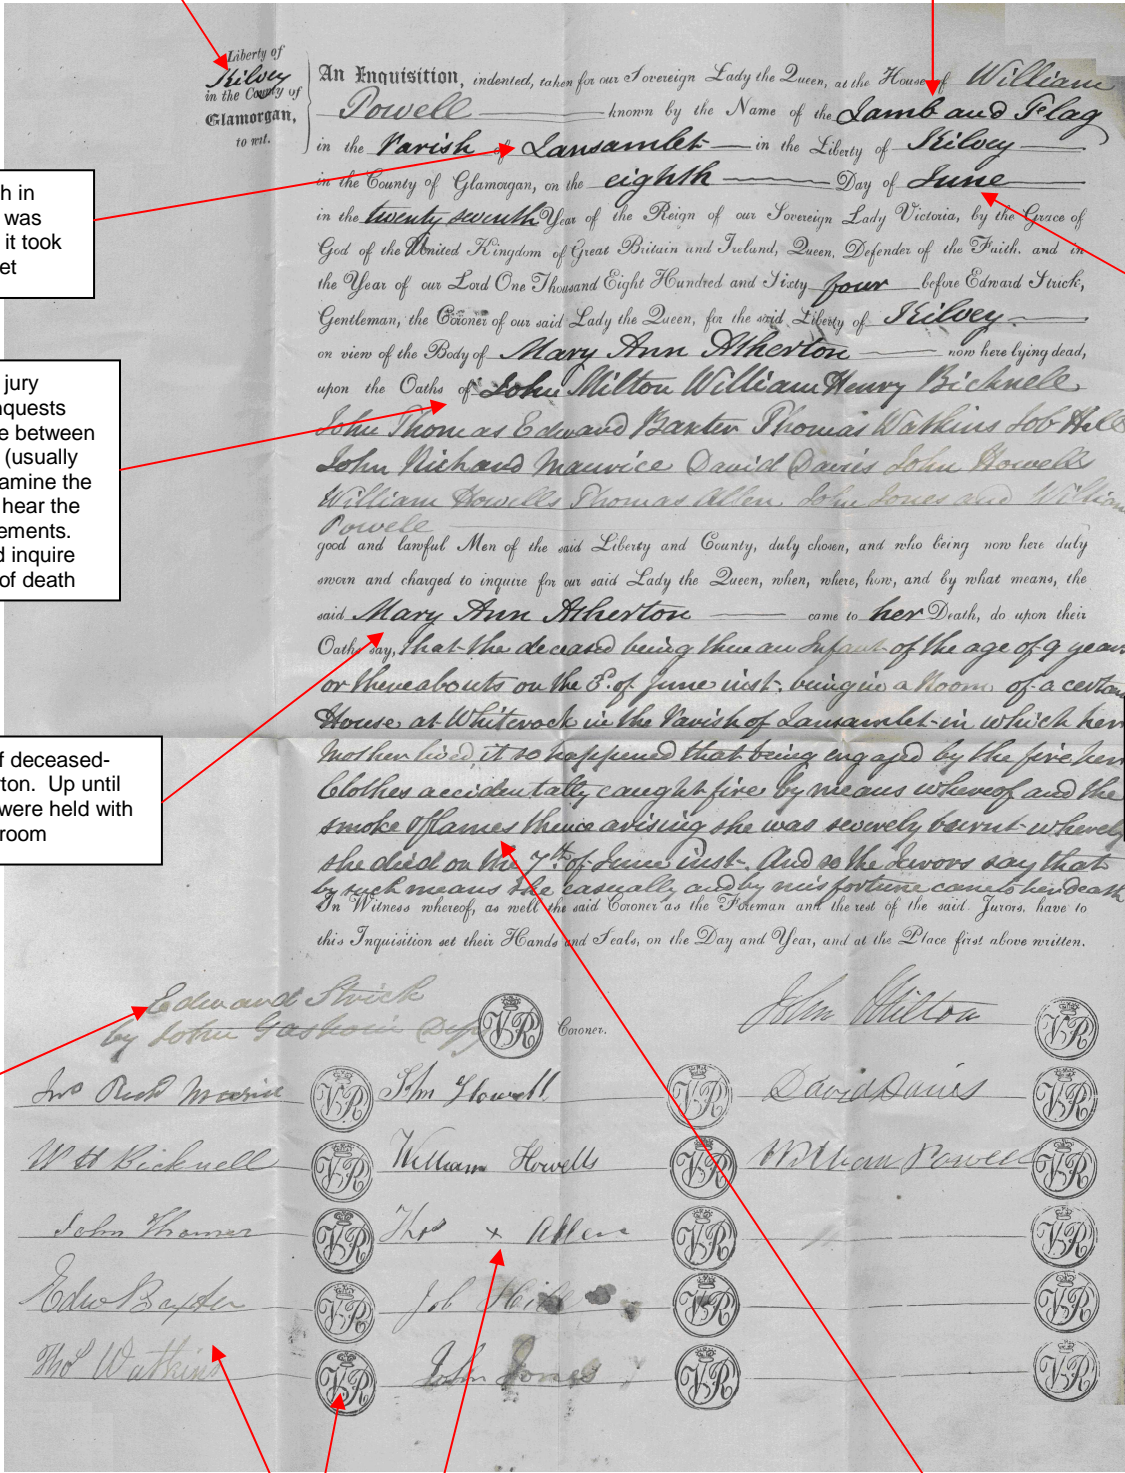 Liberty of
Kilvey
in the County of
Glamorgan,
to wit.
An Inquisition, indented, taken for our Sovereign Lady the Queen, at the House of William
Powell known by the Name of the Lamb and Flag
in the Parish of Lansamlet in the Liberty of Kilvey
in the County of Glamorgan, on the eighth Day of June
in the twenty seventh Year of the Reign of our Sovereign Lady Victoria, by the Grace of
God of the United Kingdom of Great Britain and Ireland, Queen, Defender of the Faith, and in
the Year of our Lord One Thousand Eight Hundred and Sixty four before Edward Strick,
Gentleman, the Coroner of our said Lady the Queen, for the said Liberty of Kilvey
on view of the Body of Mary Ann Atherton now here lying dead,
upon the Oaths of John Milton William Henry Bicknell
John Thomas Edward Baxter Thomas Watkins Job Hill
John Richard Maurice David Davis John Howells
William Howells Thomas Allen John Jones and William
Powell
good and lawful Men of the said Liberty and County, duly chosen, and who being now here duly
sworn and charged to inquire for our said Lady the Queen, when, where, how, and by what means, the
said Mary Ann Atherton came to her Death, do upon their
Oaths say, that the deceased being then an Infant of the age of 9 years
or thereabouts on the of June inst. being in a Room of a certain
House at Whiterock in the Parish of Lansamlet in which her
mother lived it so happened that being engaged by the fire her
Clothes accidentally caught fire by means whereof and the
smoke & flames thence arising she was severely burnt whereby
she died on the 7th of June inst. And so the Jurors say that
by such means she casually and by misfortune came to her death
In Witness whereof, as well the said Coroner as the Foreman and the rest of the said Jurors, have to
this Inquisition set their Hands and Seals, on the Day and Year, and at the Place first above written.
h in
was
it took
et
jury
nquests
e between
(usually
xamine the
hear the
ements.
d inquire
of death
f deceased-
rton. Up until
were held with
room
Edward Strick
by John Depy VR Coroner.
John Milton VR
Jno Richd Maurice VR John Howell VR David Davis VR
W H Bicknell VR William Howells VR William Powell VR
John Thomas VR Thos x Allen VR VR
Edw Baxter VR Job Hill VR VR
Thos Watkins VR John Jones VR VR